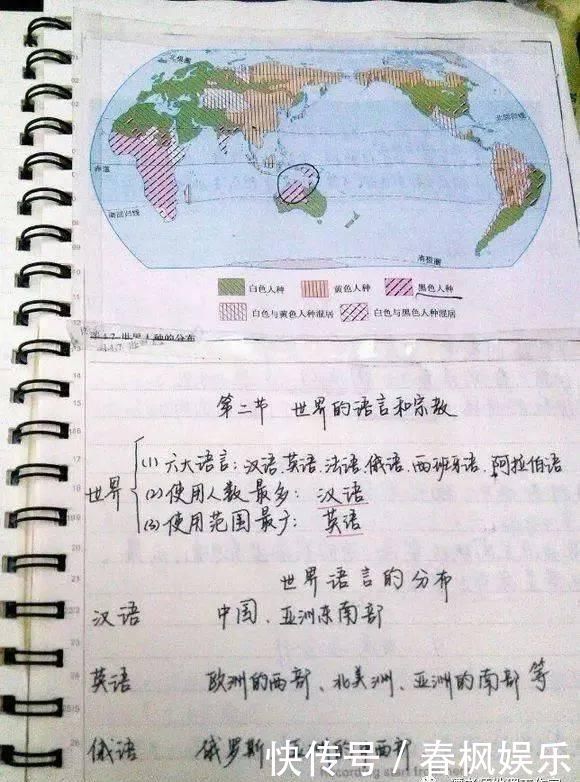 北极圈
北回归线
赤道
南回归线
南极圈
白色人种 黄色人种 黑色人种
白色与黄色人种混居 白色与黑色人种混居
世界人种的分布
第二节 世界的语言和宗教
世界
(1) 六大语言：汉语、英语、法语、俄语、西班牙语、阿拉伯语
(2) 使用人数最多：汉语
(3) 使用范围最广：英语
世界语言的分布
汉语 中国、亚洲东南部
英语 欧洲的西部、北美洲、亚洲的南部等
俄语 俄罗斯
快传号 / 春枫娱乐